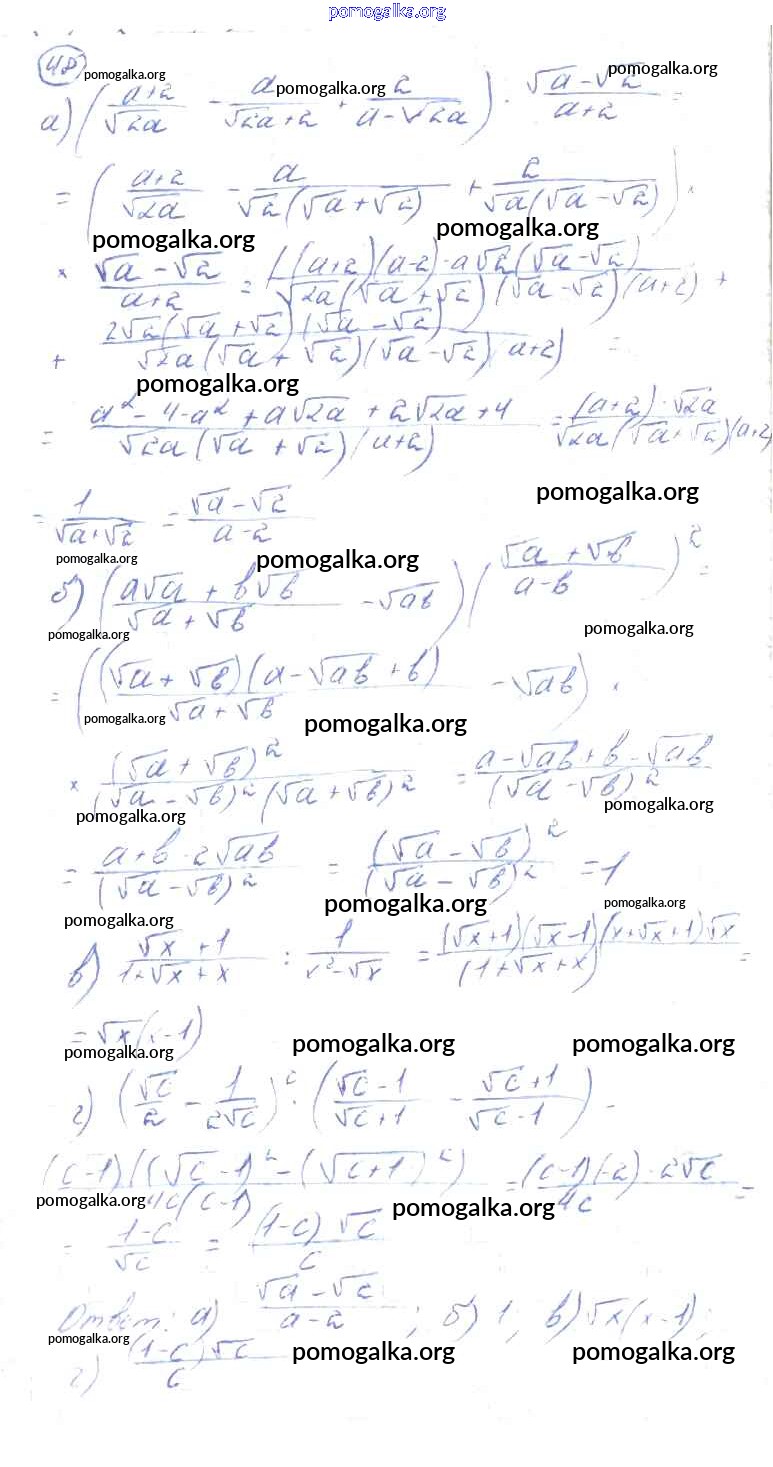 pomogalka.org
48
pomogalka.org pomogalka.org pomogalka.org
а) ( (a+2)/√2a - a/(√2a+2) + 2/(a-√2a) ) · (√a-√2)/(a+2) =
= ( (a+2)/√2a - a/(√2(√a+√2)) + 2/(√a(√a-√2)) ) ×
pomogalka.org pomogalka.org
× (√a-√2)/(a+2) = ((a+2)(a-2)-a√2(√a-√2))/(√2a(√a+√2)(√a-√2)(a+2) +
+ 2√2(√a+√2)(√a-√2)/(√2a(√a+√2)(√a-√2)(a+2)) =
pomogalka.org
= (a²-4-a²+a√2a+2√2a+4)/(√2a(√a+√2)(a+2)) = (a+2)·√2a/(√2a(√a+√2)(a+2)
pomogalka.org
= 1/(√a+√2) = (√a-√2)/(a-2)
pomogalka.org pomogalka.org
б) ( (a√a+b√b)/(√a+√b) - √ab ) ( (√a+√b)/(a-b) )² =
pomogalka.org pomogalka.org
= ( (√a+√b)(a-√ab+b)/(√a+√b) - √ab ) ·
pomogalka.org pomogalka.org
× (√a+√b)²/((√a-√b)²(√a+√b)²) = (a-√ab+b-√ab)/(√a-√b)²
pomogalka.org pomogalka.org
= (a+b-2√ab)/(√a-√b)² = (√a-√b)²/(√a-√b)² = 1
pomogalka.org pomogalka.org pomogalka.org
в) (√x+1)/(1+√x+x) : 1/(x²-√x) = (√x+1)(√x-1)(x+√x+1)√x/(1+√x+x) =
= √x(x-1)
pomogalka.org pomogalka.org pomogalka.org
г) (√c/2 - 1/2√c)² : ( (√c-1)/(√c+1) - (√c+1)/(√c-1) ) =
(c-1)((√c-1)²-(√c+1)²)/4c(c-1) = (c-1)(-2)·2√c/4c =
pomogalka.org pomogalka.org
= (1-c)/√c = (1-c)√c/c
Ответ: а) (√a-√c)/(a-2); б) 1; в) √x(x-1);
pomogalka.org pomogalka.org pomogalka.org
г) (1-c)√c/c